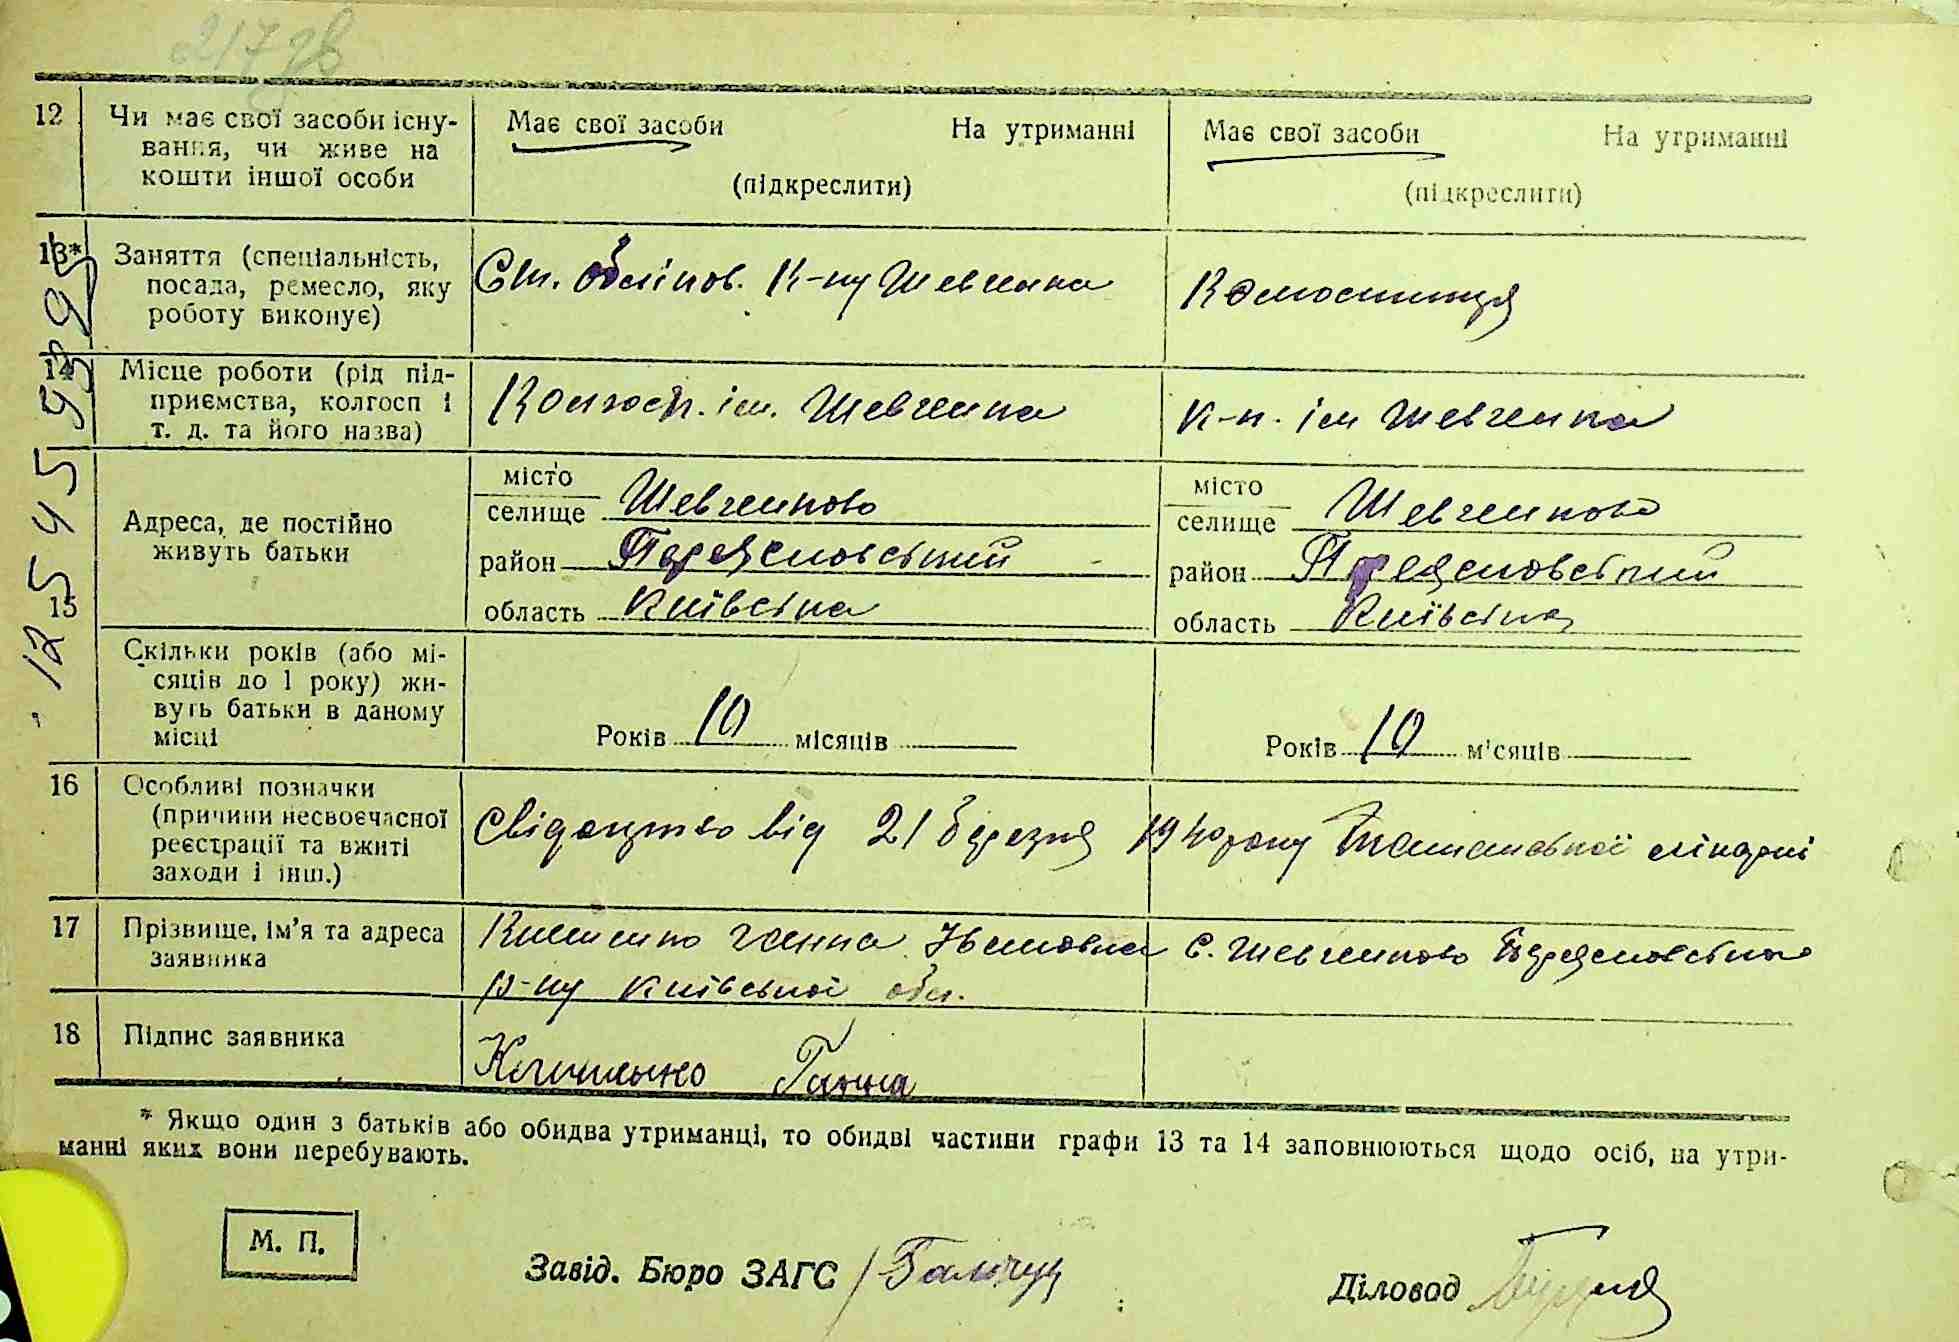 21728
12 Чи має свої засоби існу- Має свої засоби На утриманні Має свої засоби На утриманні
вання, чи живе на
кошти іншої особи (підкреслити) (підкреслити)
13* Заняття (спеціальність, Ст. обліков. К-пу Шевченка Колгоспниця
посада, ремесло, яку
роботу виконує)
14 Місце роботи (рід під- Колгосп. ім. Шевченка К-п. ім Шевченка
приємства, колгосп і
т. д. та його назва)
15 Адреса, де постійно
живуть батьки
місто
селище Шевченково
район Переяславський
область Київська
місто
селище Шевченково
район Переяславський
область Київська
Скільки років (або мі-
сяців до 1 року) жи-
вуть батьки в даному
місці
Років 10 місяців Років 10 місяців
16 Особливі позначки
(причини несвоєчасної Свідоцтво від 21 березня 1940 року лікарні
реєстрації та вжиті
заходи і інш.)
17 Прізвище, ім’я та адреса Ганна Івановна с. Шевченково Переяславського
заявника р-ну Київської обл.
18 Підпис заявника Ганна
* Якщо один з батьків або обидва утриманці, то обидві частини графи 13 та 14 заповнюються щодо осіб, на утри-
манні яких вони перебувають.
М. П.
Завід. Бюро ЗАГС Діловод